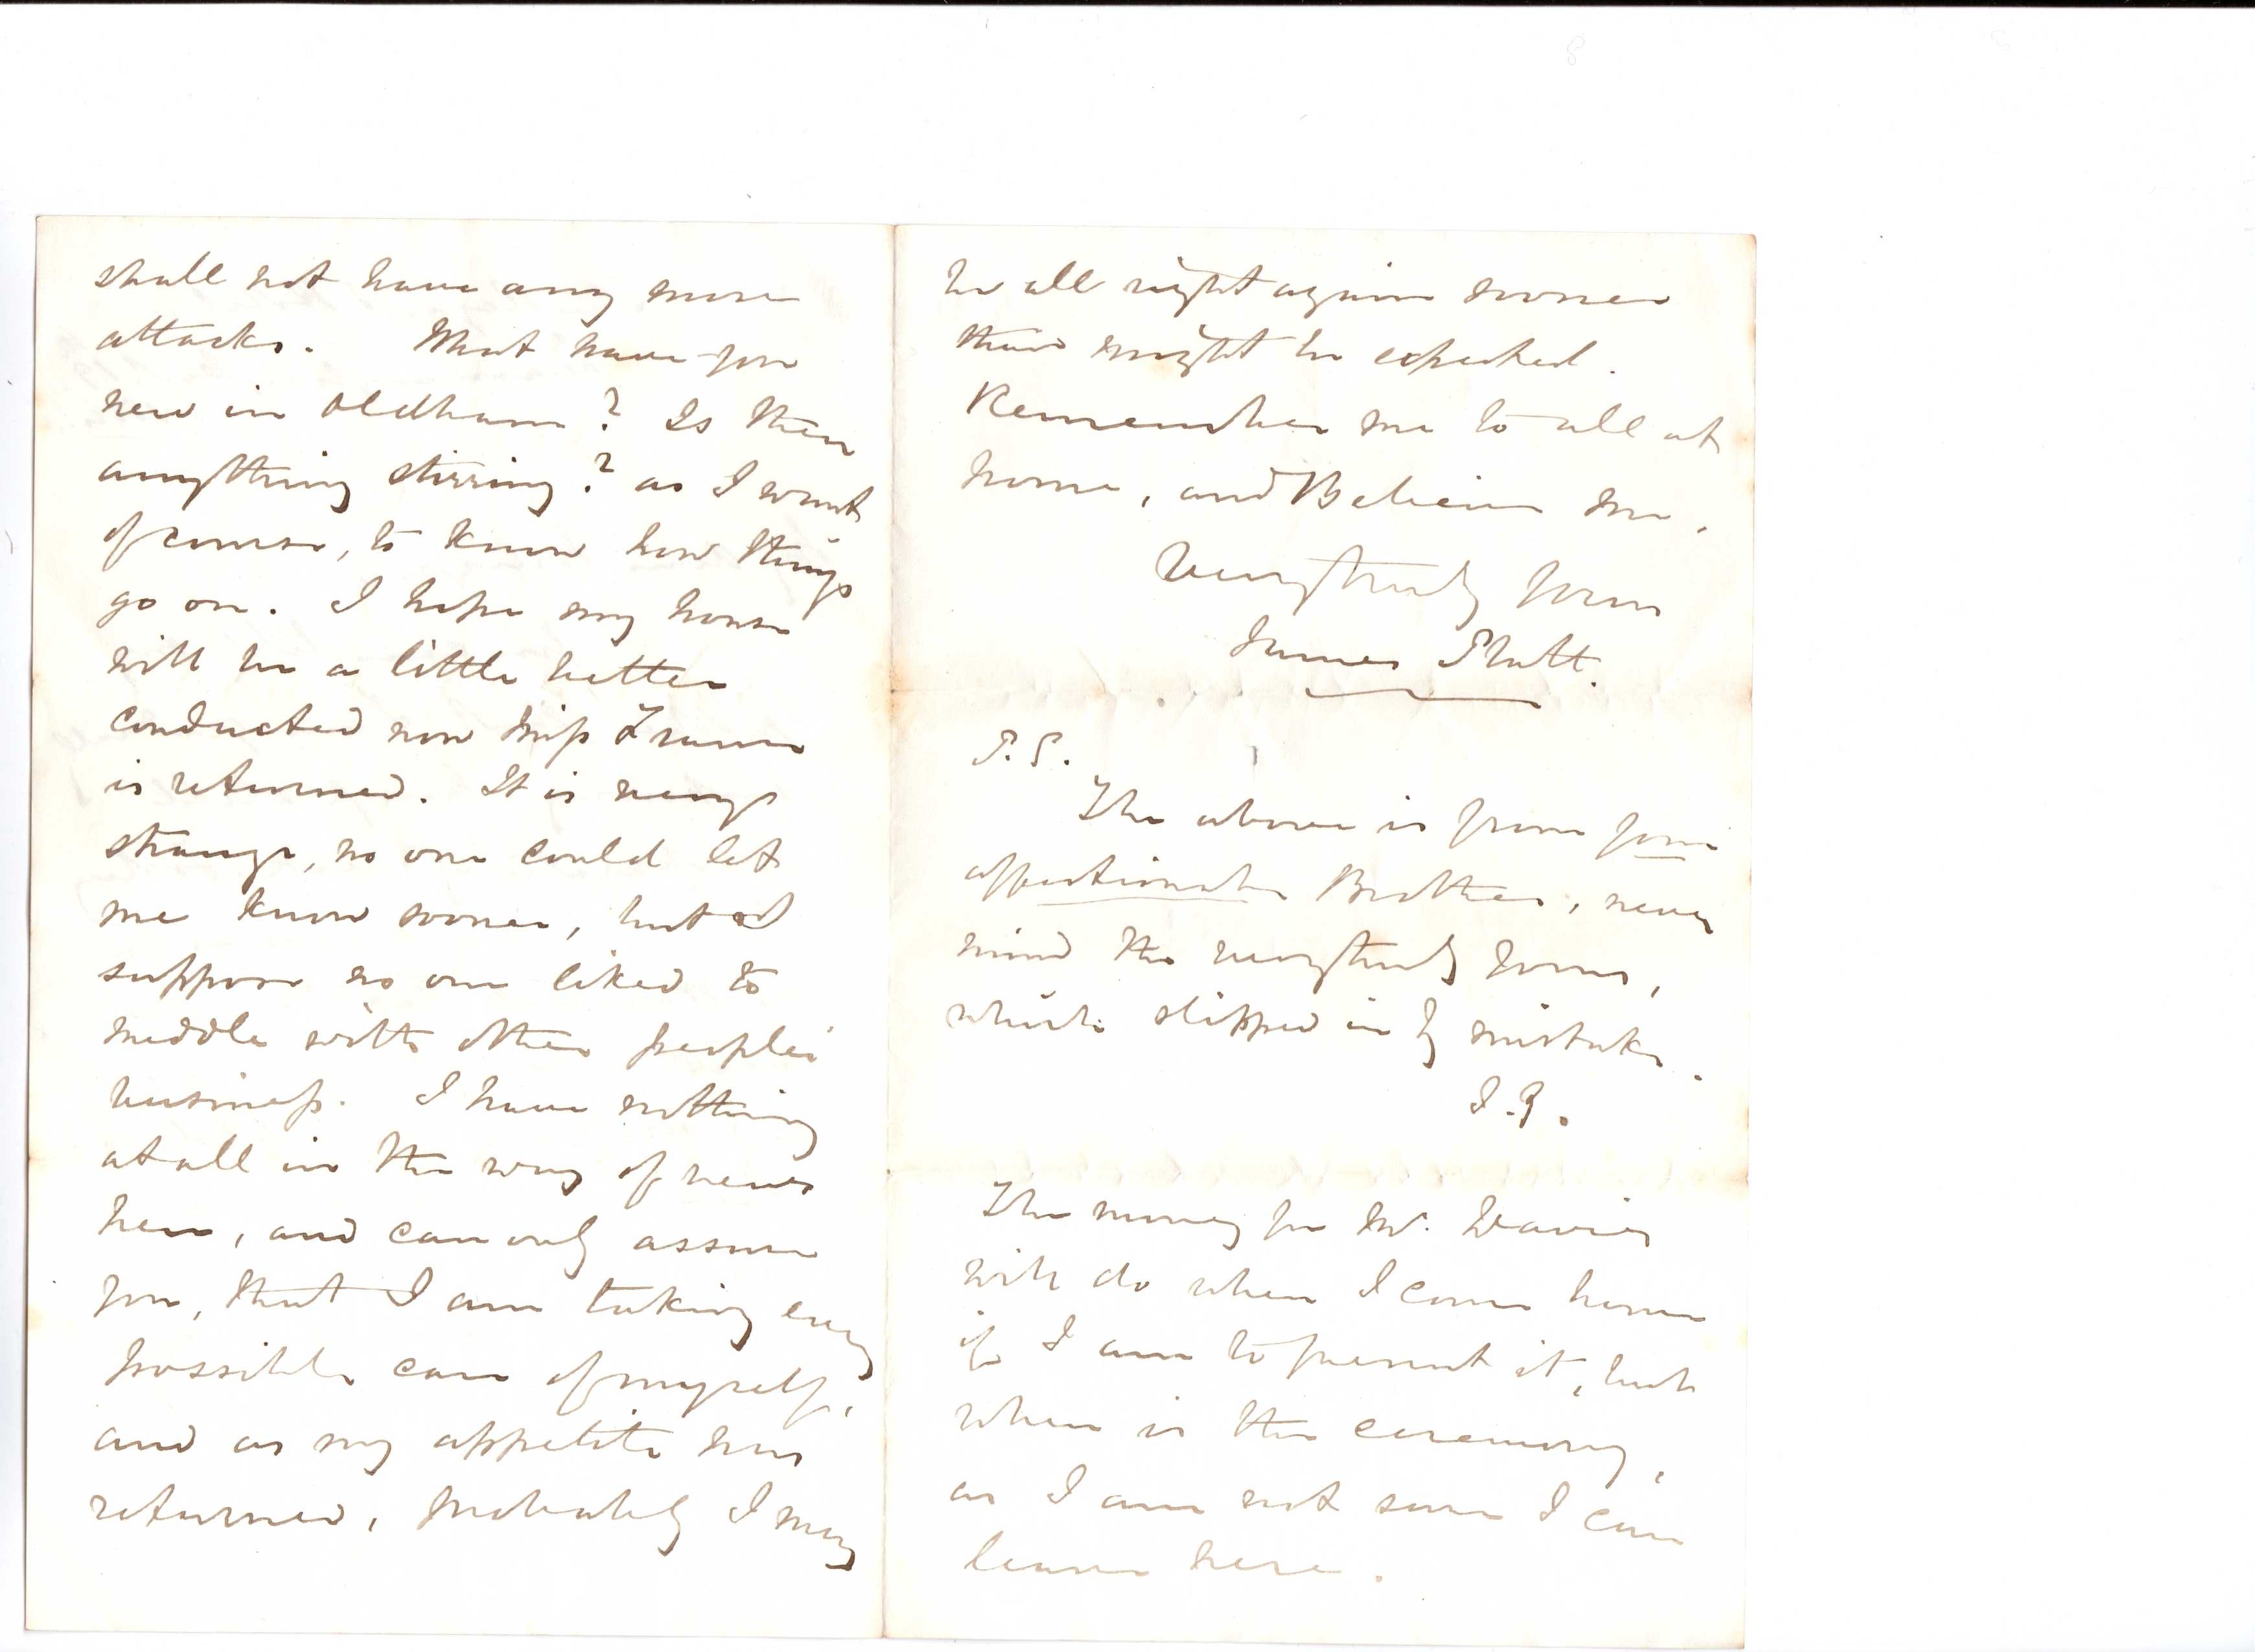 shall not have any more
attacks. What have you
new in Oldham? Is there
anything stirring? as I want
of course, to know how things
go on. I hope my house
will be a little better
conducted now Miss
is returned. It is very
strange, no one could let
me know sooner, but I
suppose no one liked to
meddle with other peoples
business. I have nothing
at all in the way of news
here, and can only assure
you, that I am taking every
possible care of myself,
and as my appetite has
returned, probably I may
be all right again sooner
than might be expected.
Remember me to all at
home, and Believe me,
Very truly yours
James Platt.
P.S.
The above is from your
affectionate Brother, never
mind the very truly yours,
which slipped in by mistake.
J.P.
The money for Mr. Davies
will do when I come home
if I am to present it, but
when is the ceremony,
as I am not sure I can
leave here.